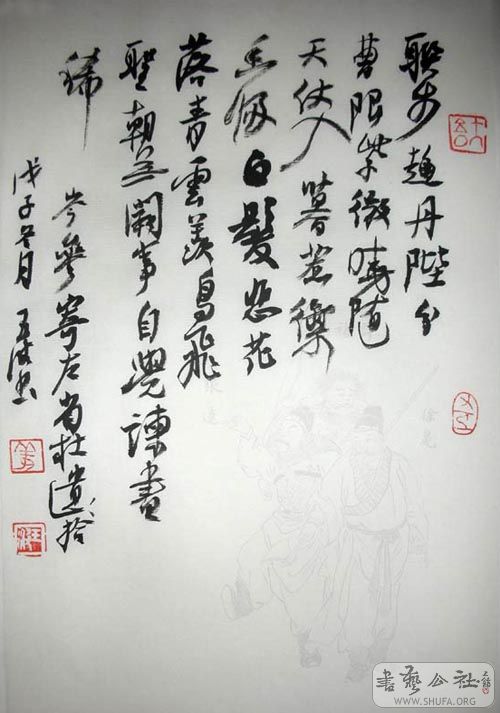 聯步趨丹陛分
曹限紫微曉隨
天仗入暮惹御
香歸白髮悲花
落青雲羨鳥飛
聖朝無闕事自覺諫書
稀
岑參寄左省杜遺拾
戊子冬月王書
書藝公社
WWW.SHUFA.ORG